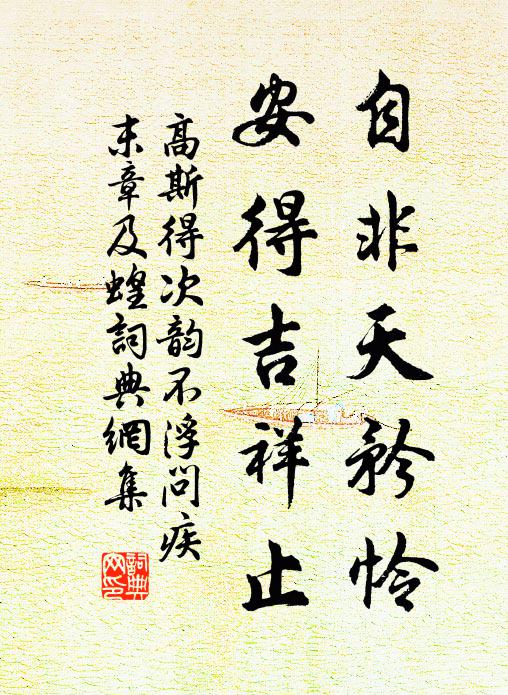 自非天矜怜
安得吉祥止
高斯得次韵不浮问疾
末章及蝗詞典網集
詞典
网印